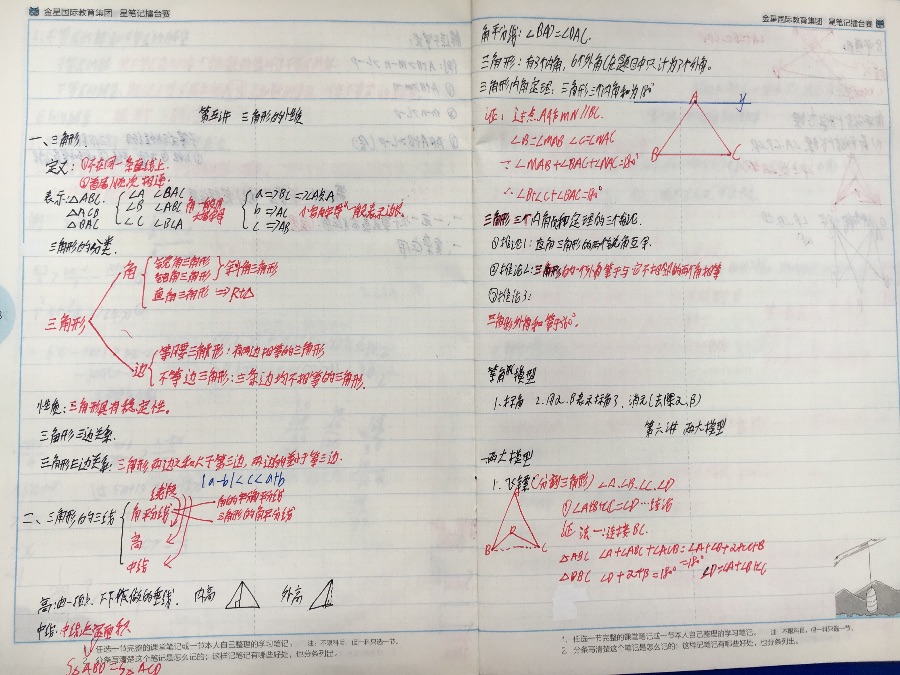 金星国际教育集团 星笔记擂台赛
第五讲 三角形的性质
一、三角形
定义：①不在同一条直线上.
②首尾顺次相连.
表示：△ABC. ∠A ∠BAC a⇒BC⇒∠A对A
△ACB ∠B ∠ABC 角一般用大写字母 b⇒AC 小写字母一般表示边长.
△BAC ∠C ∠BCA c⇒AB
三角形的分类.
三角形
角 锐角三角形 斜角三角形
钝角三角形
直角三角形 ⇒Rt△
边 等腰三角形：有两边相等的三角形
不等边三角形：三条边均不相等的三角形.
性质：三角形具有稳定性。
三角形三边关系.
三角形三边关系：三角形两边之和大于第三边，两边的差小于第三边.
|a-b|<c<a+b
二、三角形的三线
线段
角平分线 角的平分线
三角形的角平分线
高
中线
高：由一顶点，下作做的垂线. 内高 外高
中线：中线 面积
S△ABD=S△ACD
1. 任选一节完整的课堂笔记或一节本人自己整理的学习笔记， 注：不限科目，但一科只选一节.
2. 分条写清楚这个笔记是怎么记的；这样记笔记有哪些好处，也分条列出。
金星国际教育集团 星笔记擂台赛
角平分线：∠BAD=∠DAC.
三角形：有3个内角，6个外角(在题目中只计为3个外角。
三角形内角定理：三角形三个内角和为180°
证：过点A作MN∥BC.
∠B=∠MAB ∠C=∠NAC
∵∠MAB+∠BAC+∠NAC=180°
∴∠B+∠C+∠BAC=180°
A y
B C
三角形三个内角和定理的三个推论.
①推论1：直角三角形的两个锐角互余.
②推论2：三角形的一个外角等于与它不相邻的两个角相等
③推论3：
三角形外角和等于360°.
等角模型
1.标角 2.用α.β表示标角 3.消元(去除α.β)
第六讲 两大模型
两大模型
1.飞镖(分割三角形) ∠A.∠B.∠C.∠D
①∠A+∠B+∠C=∠D…结论
证 法一：连接BC.
B D C
△ABC ∠A+∠ABC+∠ACB=180°
△DBC ∠D+∠1+∠2=180° ∠D=∠A+∠B+∠C
1. 任选一节完整的课堂笔记或一节本人自己整理的学习笔记， 注：不限科目，但一科只选一节.
2. 分条写清楚这个笔记是怎么记的；这样记笔记有哪些好处，也分条列出。